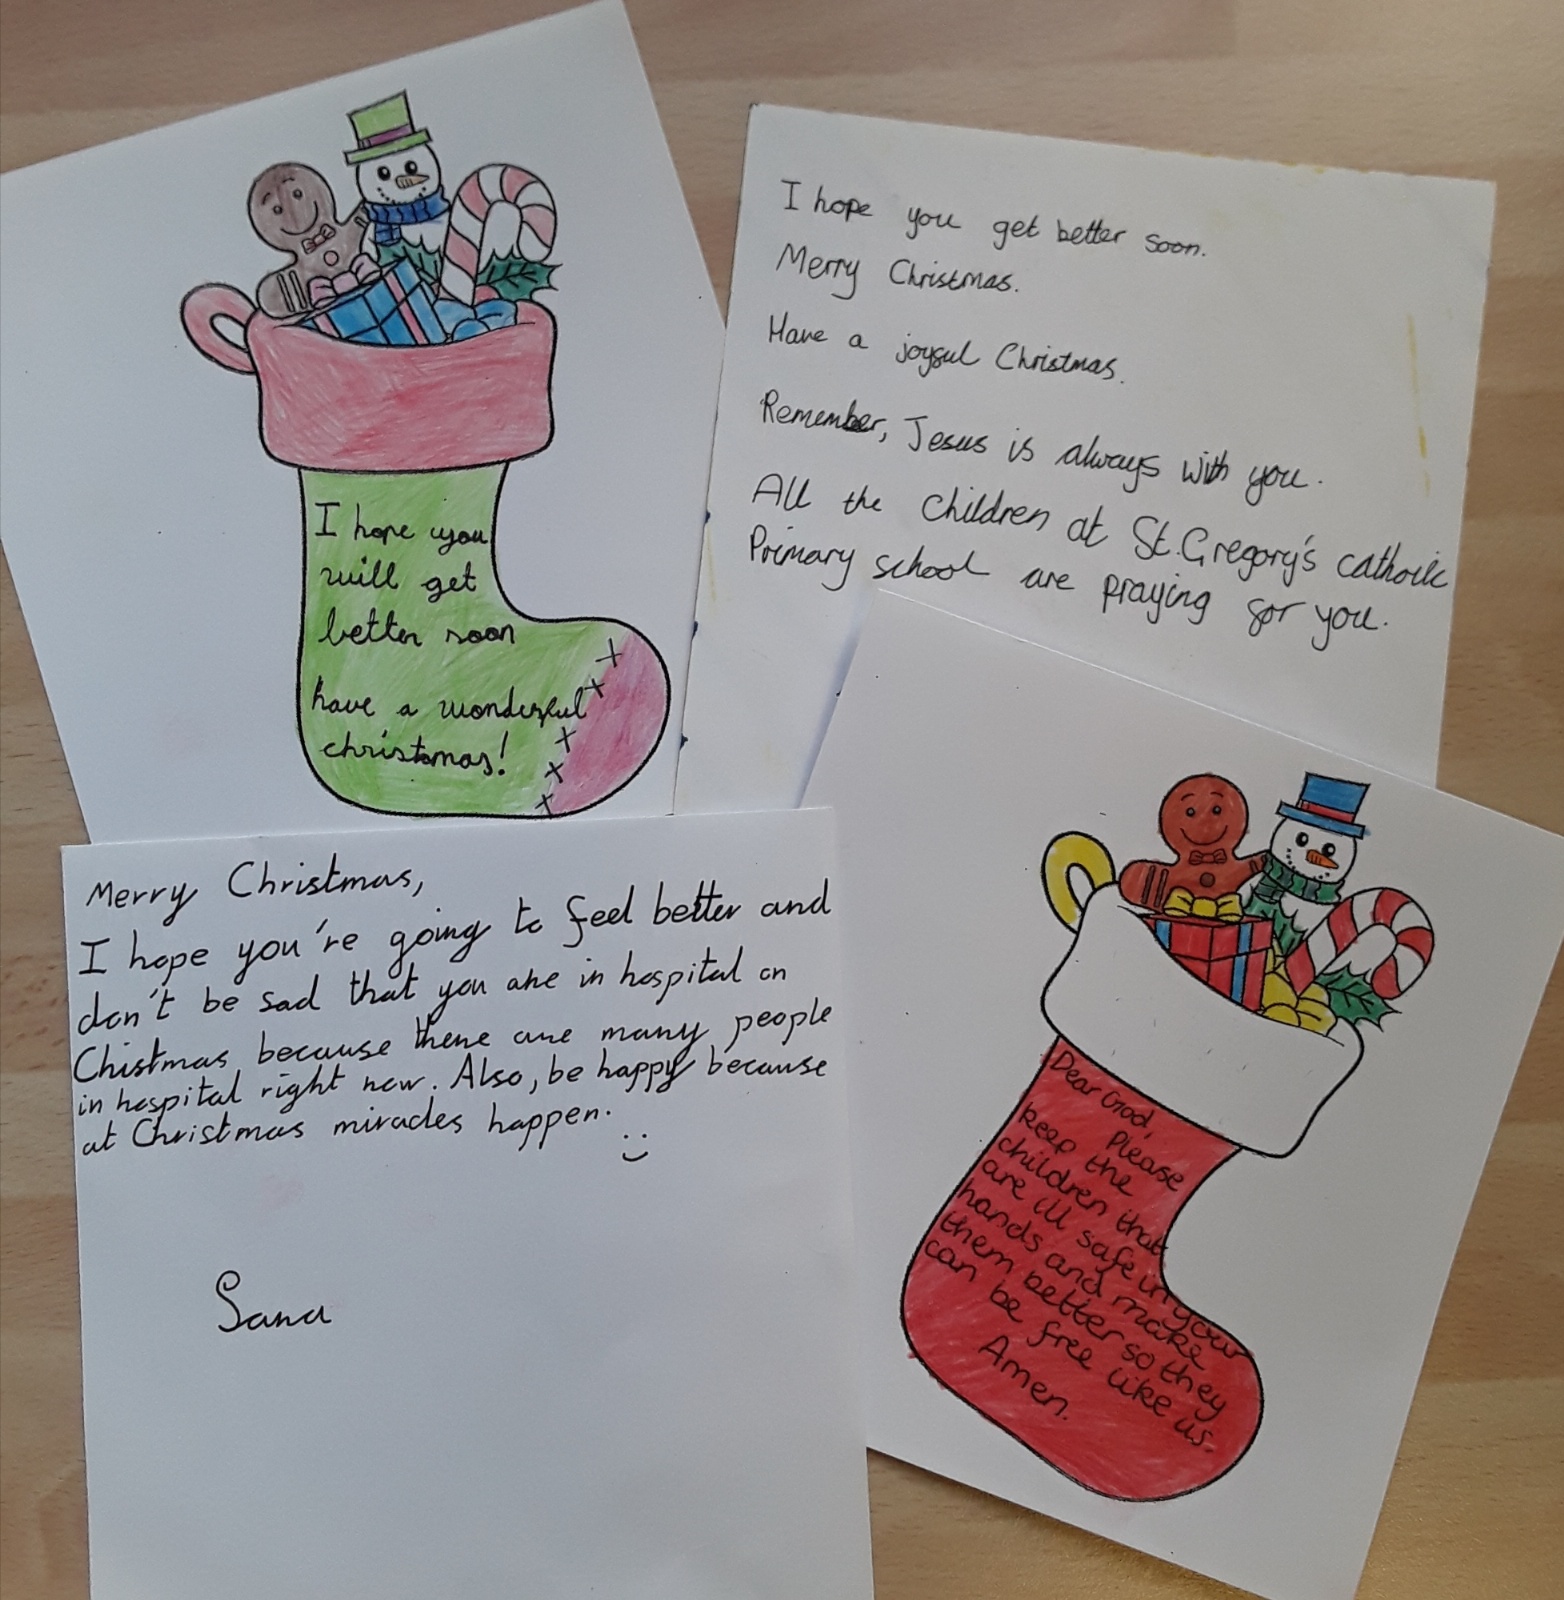 I hope you
will get
better soon
have a wonderful
christmas!
I hope you get better soon.
Merry Christmas.
Have a joyful Christmas.
Remember, Jesus is always with you.
All the children at St. Gregory's catholic
Primary school are praying for you.
Merry Christmas,
I hope you're going to feel better and
don't be sad that you are in hospital on
Chistmas because there are many people
in hospital right now. Also, be happy because
at Christmas miracles happen.
Sana
Dear God,
Please
keep the
children that
are ill safe in your
hands and make
them better so they
can be free like us.
Amen.